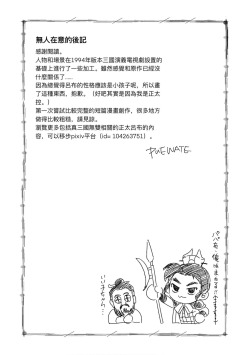 無人在意的後記
感謝閱讀。
人物和場景在1994年版本三國演義電視劇設置的
基礎上進行了一些加工。雖然感覺和原作已經沒
什麼關係了……
因為總覺得呂布的性格應該是小孩子呢，所以畫
了這種東西，抱歉。（好吧其實是因為我是正太
控。）
第一次嘗試比較完整的短篇漫畫創作，很多地方
做得比較粗糙，請見諒。
瀏覽更多包括真三國無雙相關的正太呂布的內
容，可以移步pixiv平台（id= 104263751）。